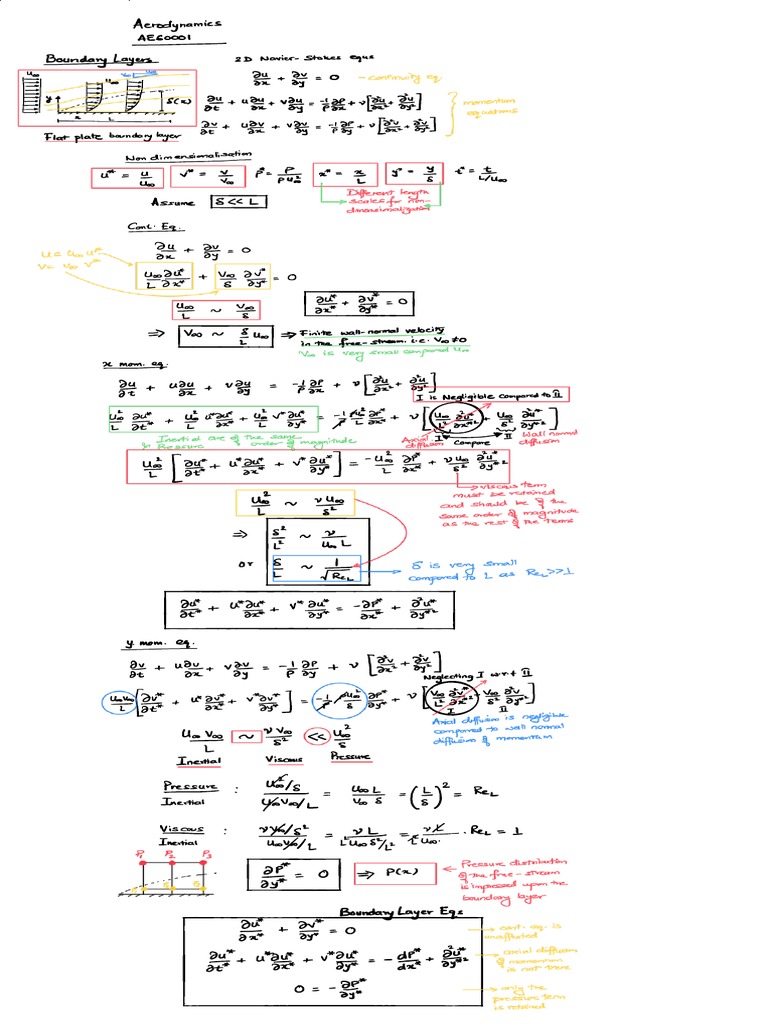 Aerodynamics
AE60001
Boundary Layers
2D Navier-Stokes equs
∂u/∂x + ∂v/∂y = 0 - continuity eq.
∂u/∂t + u∂u/∂x + v∂u/∂y = -1/ρ ∂P/∂x + ν[∂²u/∂x² + ∂²u/∂y²]
∂v/∂t + u∂v/∂x + v∂v/∂y = -1/ρ ∂P/∂y + ν[∂²v/∂x² + ∂²v/∂y²]
momentum
equations
U∞
U∞
y
δ(x)
x
L
Flat plate boundary layer
Non dimensionalisation
u* = u/U∞ v* = v/V∞ P* = P/ρU∞² x* = x/L y* = y/δ t* = t/(L/U∞)
Assume δ << L
Different length
scales for non-
dimensionalization
Cont. Eq.
∂u/∂x + ∂v/∂y = 0
u = U∞ u*
v = V∞ v*
U∞/L ∂u*/∂x* + V∞/δ ∂v*/∂y* = 0
U∞/L ~ V∞/δ
∂u*/∂x* + ∂v*/∂y* = 0
⇒ V∞ ~ δ/L U∞ ⇒ Finite wall-normal velocity
in the free-stream. i.e. V∞ ≠ 0
V∞ is very small compared U∞
x mom. eq.
∂u/∂t + u∂u/∂x + v∂u/∂y = -1/ρ ∂P/∂x + ν[∂²u/∂x² + ∂²u/∂y²]
I is Negligible compared to II
U∞²/L ∂u*/∂t* + U∞²/L u*∂u*/∂x* + U∞²/L v*∂u*/∂y* = -1/ρ ρU∞²/L ∂P*/∂x* + ν[U∞/L² ∂²u*/∂x*² + U∞/δ² ∂²u*/∂y*²]
Inertial are of the same
& Pressure order of magnitude
Axial diffusion
I
compare
II
Wall normal
diffusion
U∞²/L [∂u*/∂t* + u*∂u*/∂x* + v*∂u*/∂y*] = -U∞²/L ∂P*/∂x* + νU∞/δ² ∂²u*/∂y*²
viscous term
must be retained
and should be of the
same order of magnitude
as the rest of the terms
U∞²/L ~ νU∞/δ²
⇒ δ²/L² ~ ν/U∞L
or δ/L ~ 1/√Re_L
δ is very small
compared to L as Re_L >> 1
∂u*/∂t* + u*∂u*/∂x* + v*∂u*/∂y* = -∂P*/∂x* + ∂²u*/∂y*²
y mom. eq.
∂v/∂t + u∂v/∂x + v∂v/∂y = -1/ρ ∂P/∂y + ν[∂²v/∂x² + ∂²v/∂y²]
Neglecting I w.r.t II
U∞V∞/L [∂v*/∂t* + u*∂v*/∂x* + v*∂v*/∂y*] = -1/ρ ρU∞²/δ ∂P*/∂y* + ν[V∞/L² ∂²v*/∂x*² + V∞/δ² ∂²v*/∂y*²]
I II
Axial diffusion is negligible
compared to wall normal
diffusion of momentum
U∞V∞/L ~ νV∞/δ² << U∞²/δ
Inertial Viscous Pressure
Pressure/Inertial : (U∞²/δ)/(U∞V∞/L) = U∞L/V∞δ = (L/δ)² = Re_L
Viscous/Inertial : (νV∞/δ²)/(U∞V∞/L) = νL/(L²U∞δ²/L²) = νL/(L²U∞) · Re_L = 1
P₁ P₂ P₃
P₁ P₂ P₃
∂P*/∂y* = 0 ⇒ P(x)
Pressure distribution
of the free-stream
is impressed upon the
boundary layer
Boundary Layer Eqs
∂u*/∂x* + ∂v*/∂y* = 0
cont. eq. is
unaffected
∂u*/∂t* + u*∂u*/∂x* + v*∂u*/∂y* = -dP*/dx* + ∂²u*/∂y*²
axial diffusion
of momentum
is not there
0 = -∂P*/∂y*
only the
pressure term
is retained